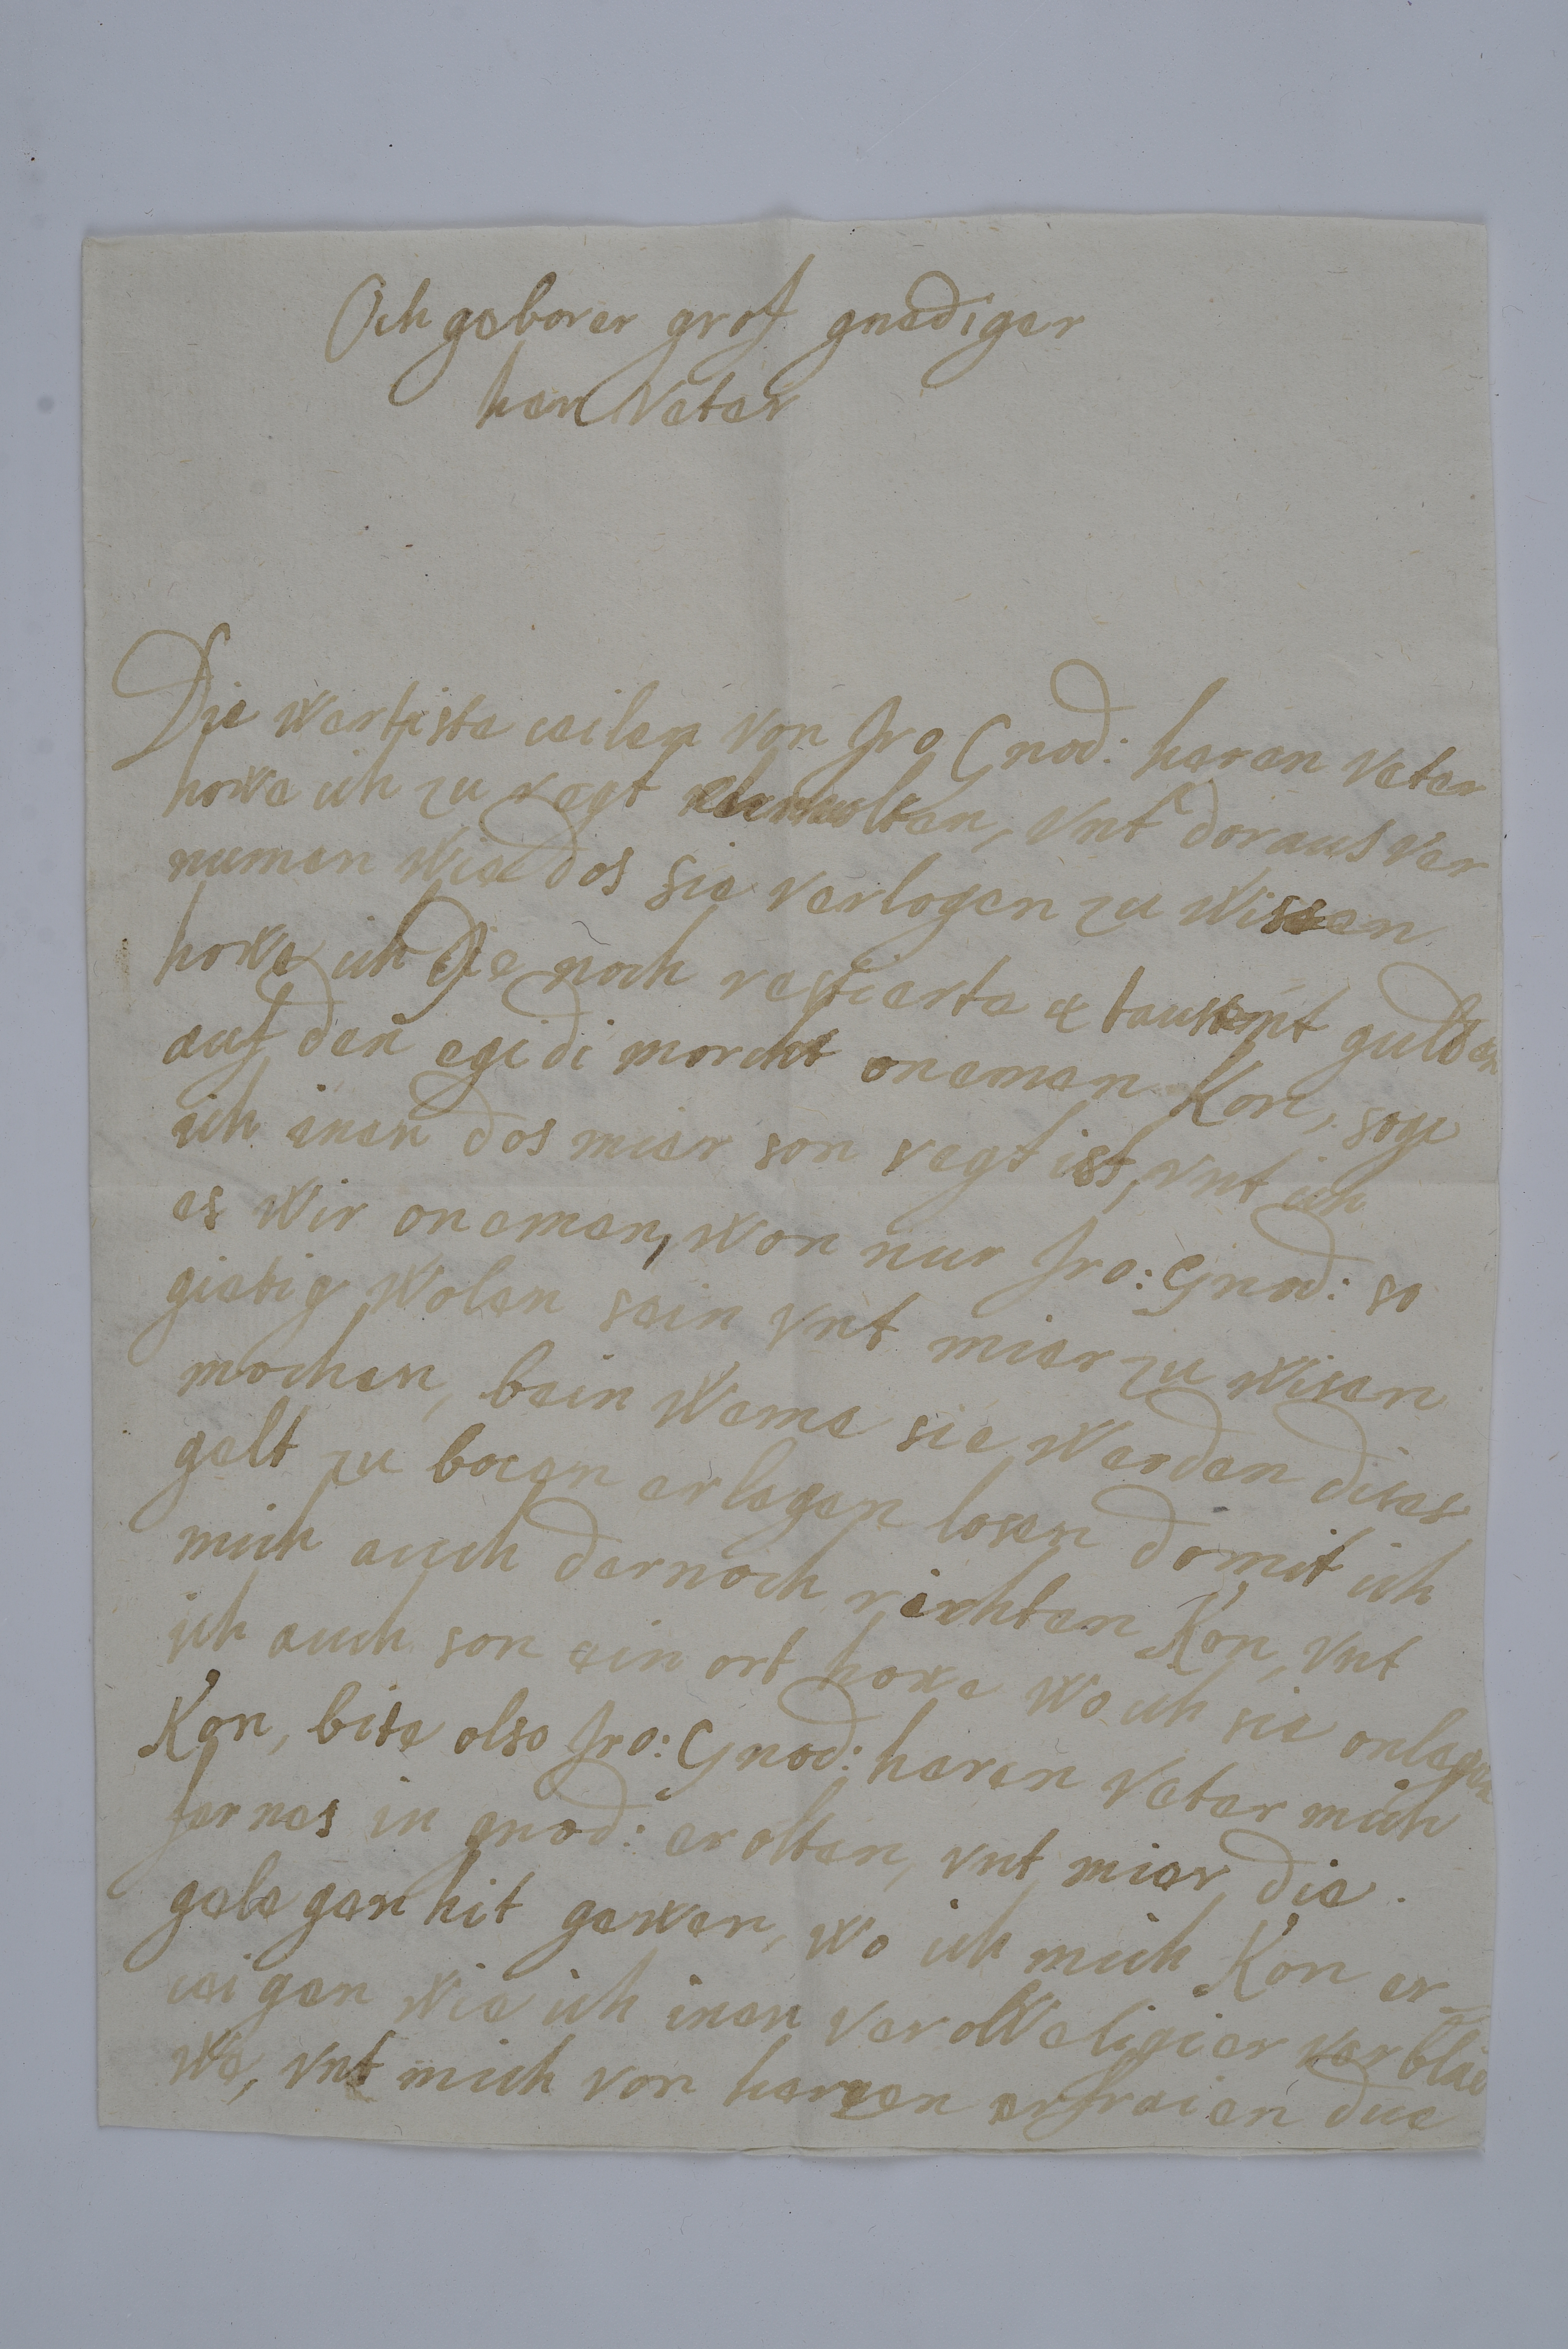 Och geborer grof gnediger
her Veter
Die Wertiste ceilen Von Jro Gnod: heren Veter
howe ich zu regt erhnolten, Vnt doraus ver
numen Wie dos sie Verlogen zu Wissen
howe ich die noch restierte 4 tausent gulden
auf den egidi morckt onemen Kon, soge
ich inen dos mier son regt ist, Vnt ich
es Wir onemen, Won nur Jro: Gnod: so
gietig Wolen sein Vnt mier zu Wisen
mochen, bein Weme sie Werden dises
gelt zu bocen erlegen losen domit ich
mich auch dernoch richten Kon, Vnt
ich auch son ein ort howe Wo ich sie onlegen
Kon, bite olso Jro: Gnod: heren Veter mich
fernes in gnod: erolten, Vnt mier die
gelegenhit gewen, Wo ich mich Kon er-
ceigen Wie ich inen Ver oWeligier verblei
We, Vnt mich von hercen erfreien due